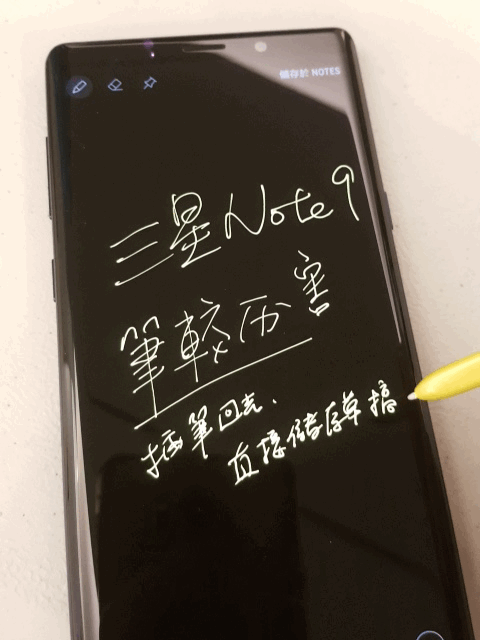 儲存於 NOTES
三星Note9
筆較厉害
插筆回去、
直接儲存草搞